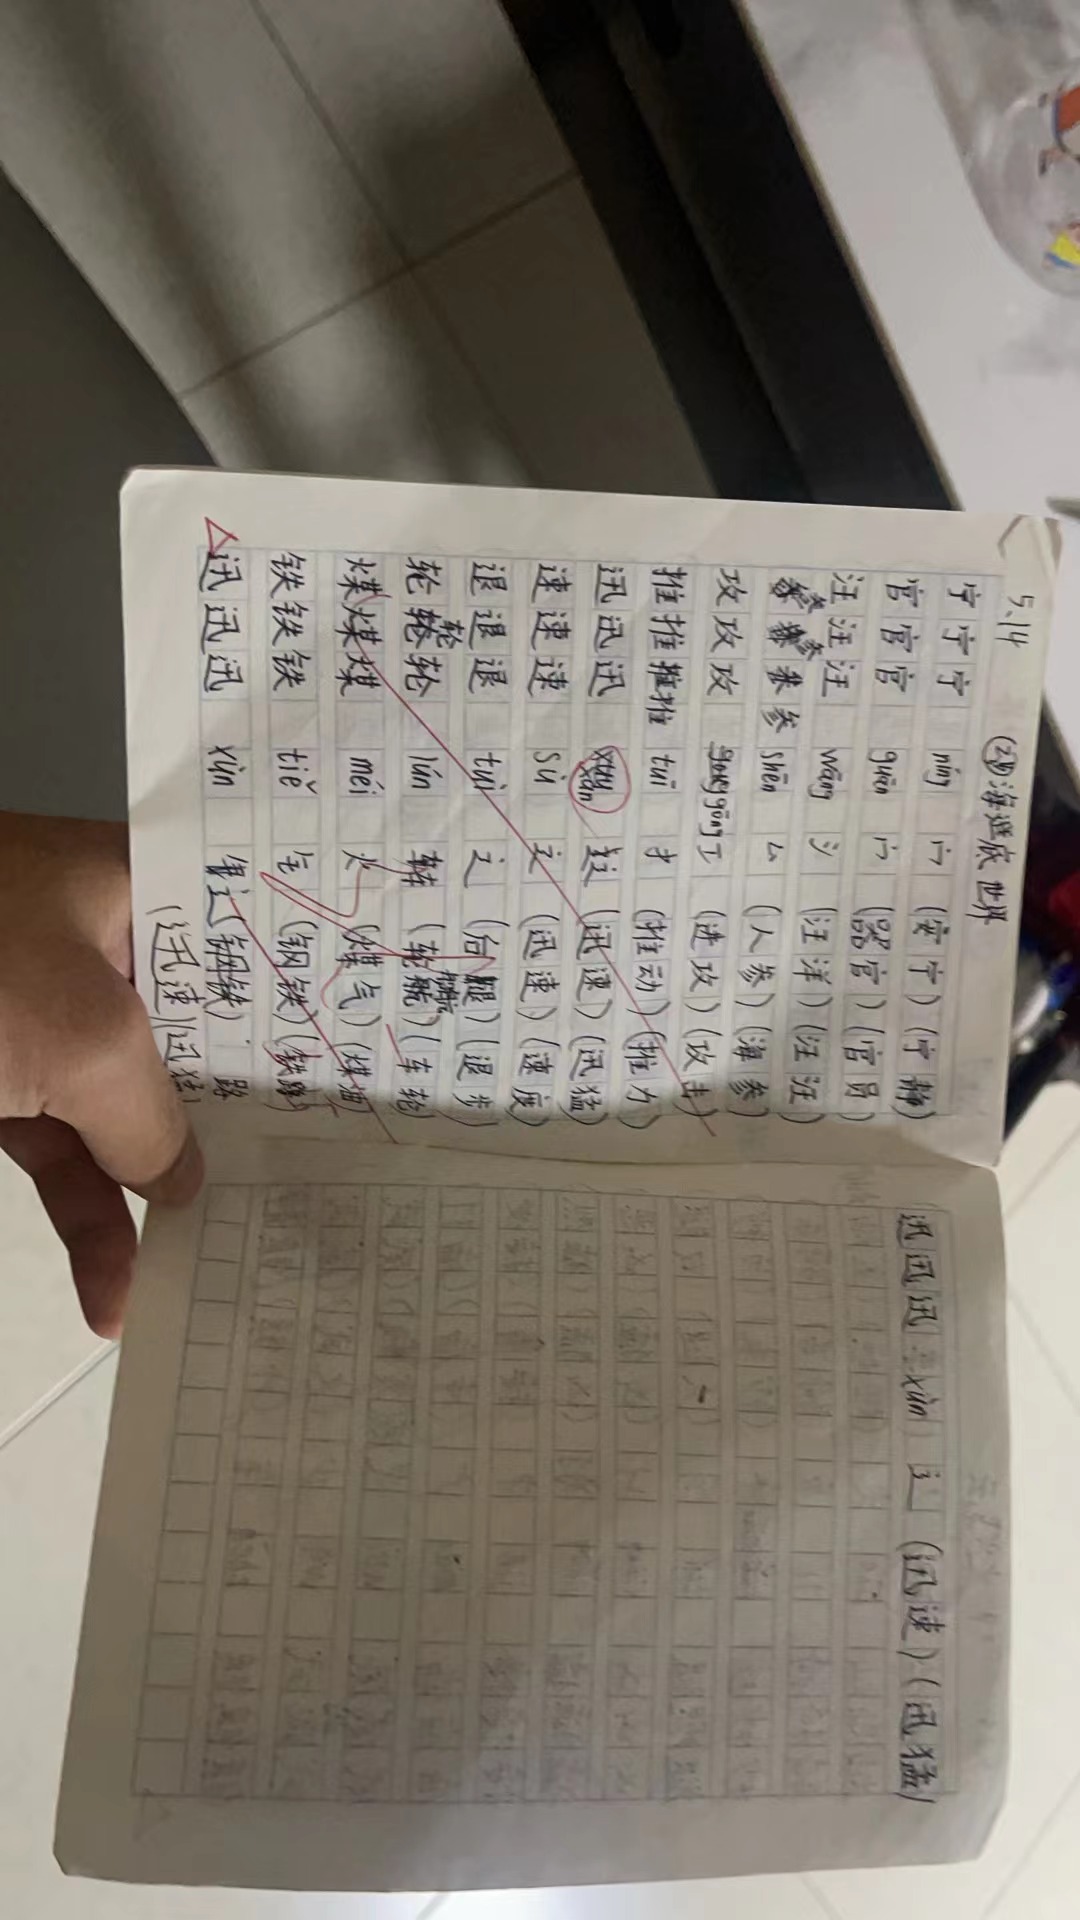 5.14 海底世界
宁宁宁 níng 宀 (安宁)(宁静)
官官官 guān 宀 (器官)(官员)
汪汪汪 wāng 氵 (汪洋)(汪汪)
参参 shēn 厶 (人参)(海参)
攻攻攻 gōng 工 (进攻)(攻击)
推推推推 tuī 扌 (推动)(推力)
迅迅迅 xùn 辶 (迅速)(迅猛)
速速速 sù 辶 (迅速)(速度)
退退退 tuì 辶 (后腿)(退步)
轮轮轮 lún 车 (轮航)(车轮)
煤煤煤 méi 火 (煤气)(煤油)
铁铁铁 tiě 钅 (钢铁)(铁路)
迅迅迅 xùn 辶 (钢铁) 路
(迅速)(迅猛)
迅迅迅 xùn 辶 (迅速)(迅猛)